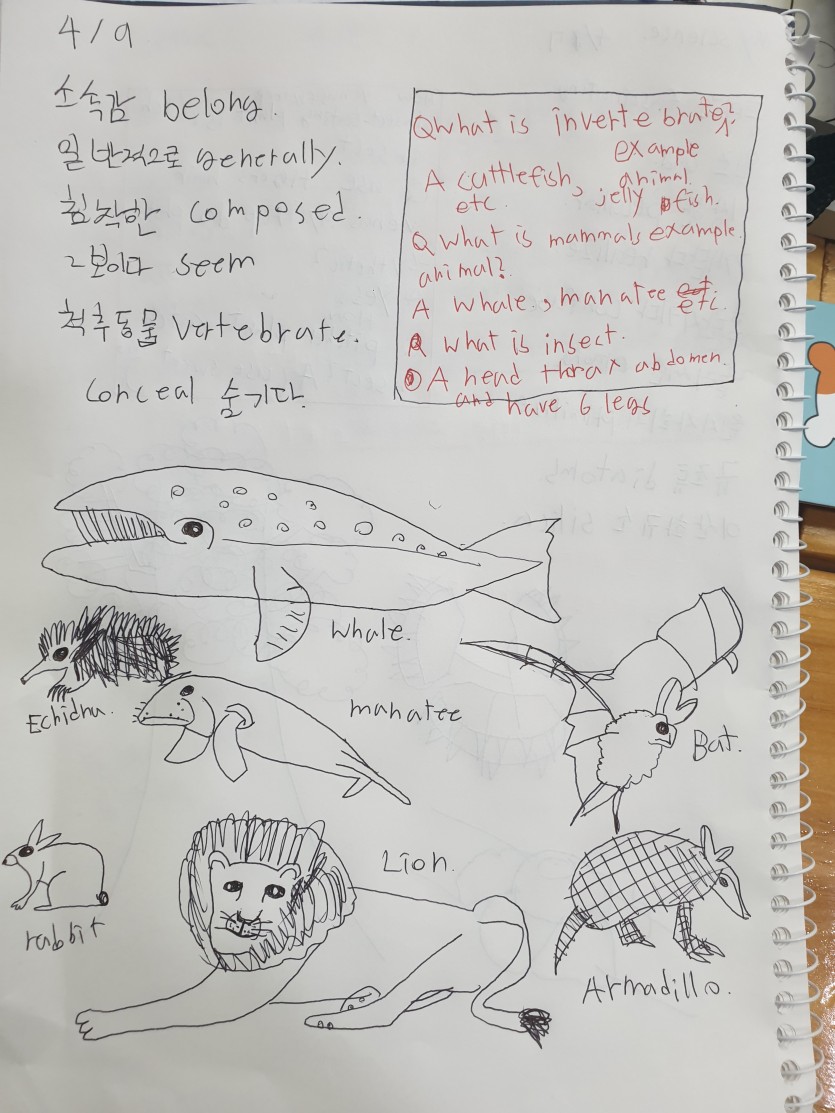 4/9
소속감 belong.
일반적으로 generally.
침착한 composed.
그 보이다 seem
척추동물 Vertebrate.
conceal 숨기다.
Q What is invertebrate?
example
A cuttlefish, animal.
etc. jelly fish.
Q What is mammals example.
animal?
A Whale, manatee
etc.
Q What is insect.
A head thorax abdomen.
and have 6 legs
Whale.
Echidna.
manatee
Bat.
Lion.
rabbit
Armadillo.